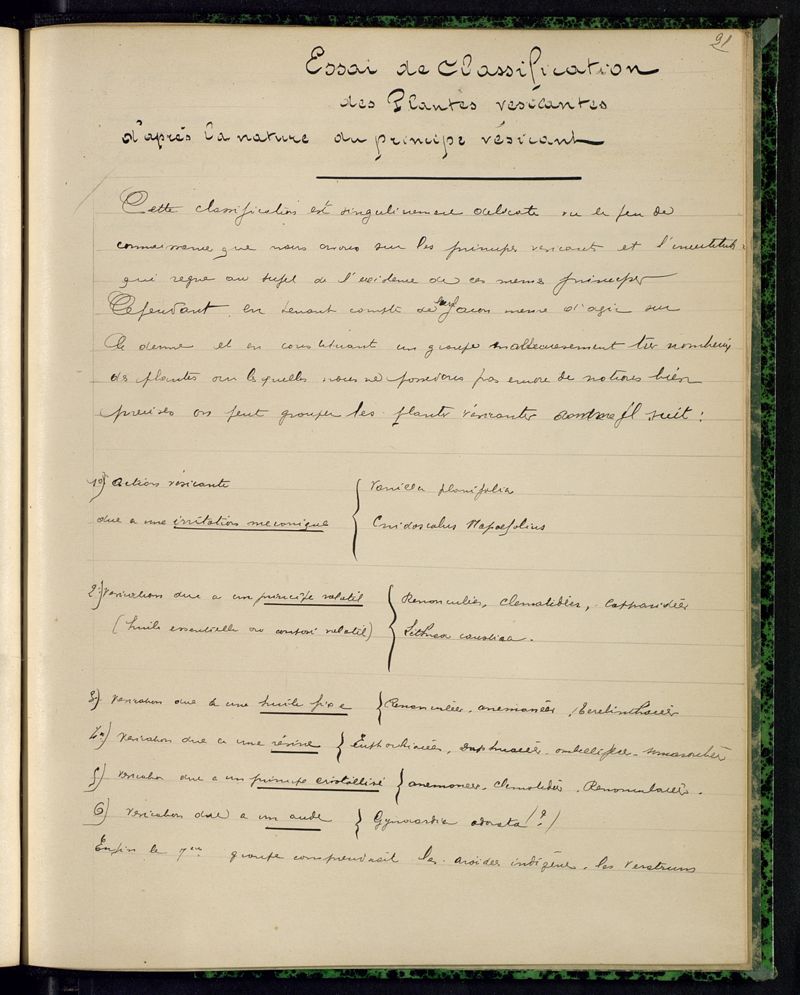 91
Essai de Classification
des Plantes vesicantes
d'après la nature du principe vésicant
Cette classification est singulierement delicate vu le peu de
connaissance que nous avons sur les principes vesicants et l'incertitude
qui regne au sujet de l'existence de ces memes principes
Cependant en tenant compte de leur façon meme d'agir sur
le derme et en constituant un groupe malheureusement très nombreux
de plantes sur lesquelles nous ne possedons pas encore de notions bien
precises on peut grouper les plantes vésicantes comme il suit :
1o) Action vésicante
due a une irritation mecanique
{ Vanilla planifolia
Cnidoscolus Napaefolius
2o) Vesication due a un principe volatil
(huile essentielle ou composé volatil)
{ Renonculées, Clematidées, Capparidées
Lithrea caustica.
3o) Vesication due à une huile fixe } Renonculées, anemonées, Terebinthacées
4o) Vesication due a une résine { Euphorbiacées, daphnacées, ombellifères, simaroubées
5) Vesication due a un principe cristallisé } anemonées, clematidées, Renonculacées.
6) Vesication due a un acide } Gynocardia odorata (?)
Enfin le 7em groupe comprendrait les aroidées indigènes, les Veratrums